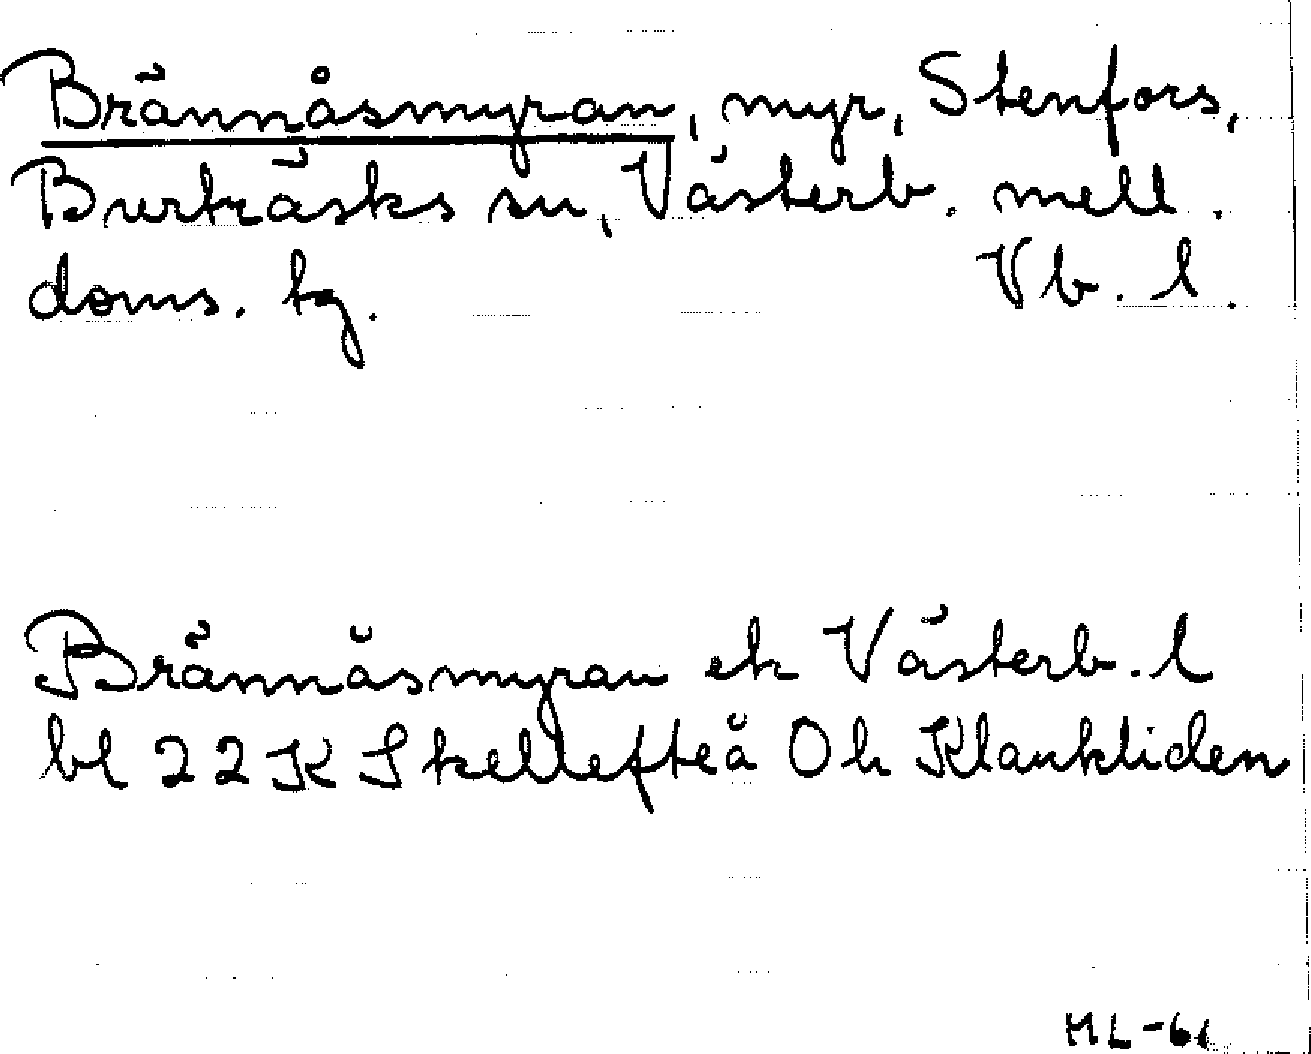 Brännåsmyran, myr, Stenfors,
Burträsks sn, Västerb. mell.
doms. tg. Vb. l.
Brännåsmyran ek Västerb. l
bl 22K Skellefteå Oh Klankliden
ML-61